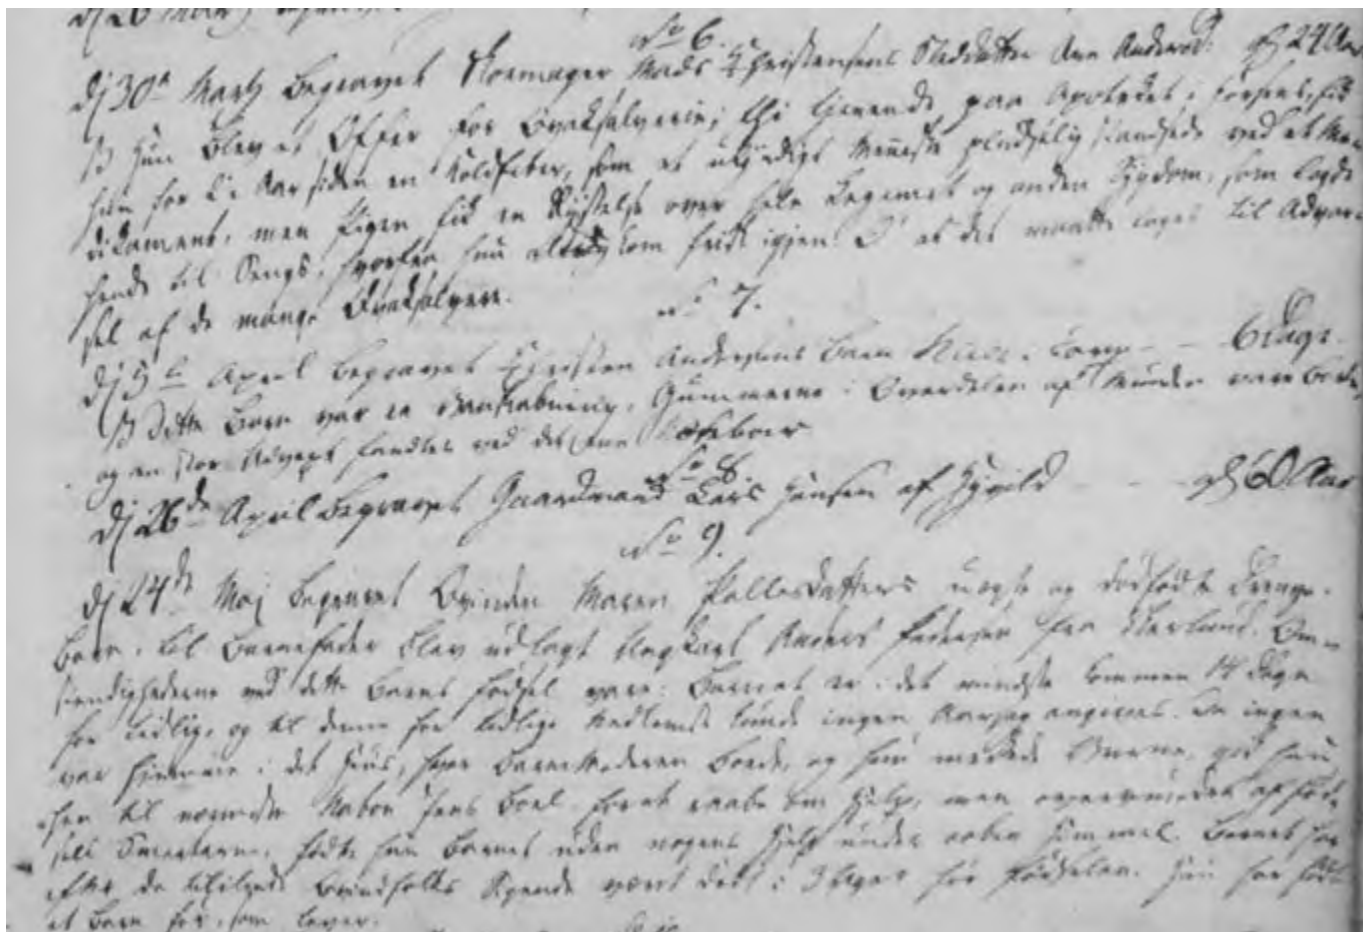 No 6.
dj 30te Martz begravet Skomager Mads Christensens Steddatter Ane Andersd: 24 Aar
Hun blev et Offer for Qvaksalverie; thi tienende paa Apotheket i Horsens, fik
hun for Aar siden en Koldfeber, som et uværdigt Menneske pludselig standsede ved et Me-
dikament, men Pigen fik en Rystelse over hele Legemet og anden Sygdom, som lagde
hende til Sengs, hvorfra hun aldrig kom frisk igjen. O! at det maatte tages til Advar-
sel af de mange Qvaksalvere.
No 7.
dj 5te April begravet Christen Andersens Barn i 6 Dage.
Dette Barn var en Vanskabning, Gummerne i Overdelen af Munden vare
og en stor Udvext fandtes ved det ene
No 8.
dj 26de April begravet Gaardmand Lars Hansen af 60 Aar
No 9.
dj 24de Maj begravet Qvinden Maren Pallesdatters uægte og dødfødte Drenge-
barn, til Barnefader blev udlagt Ungkarl Anders Pedersen fra Om-
stændighederne ved dette Barns Fødsel vare: Barnet er i det mindste kommen 14 Dage
for tidlig, og til denne for tidlige Nedkomst kunde ingen Aarsag angives. Da ingen
var hjemme i det Huus, hvor Barnemoderen boede, og hun mærkede Veerne, gik hun
hen til nærmeste Naboe Jens Boel for at raabe om Hjelp, men overvunden af Fød-
sels Smerterne, fødte hun Barnet uden nogens Hjelp under aaben Himmel. Barnet har
efter de tililende Qvindfolks Sigende været dødt i 3 Dage før Fødselen. Hun har født
et Barn før, som lever.